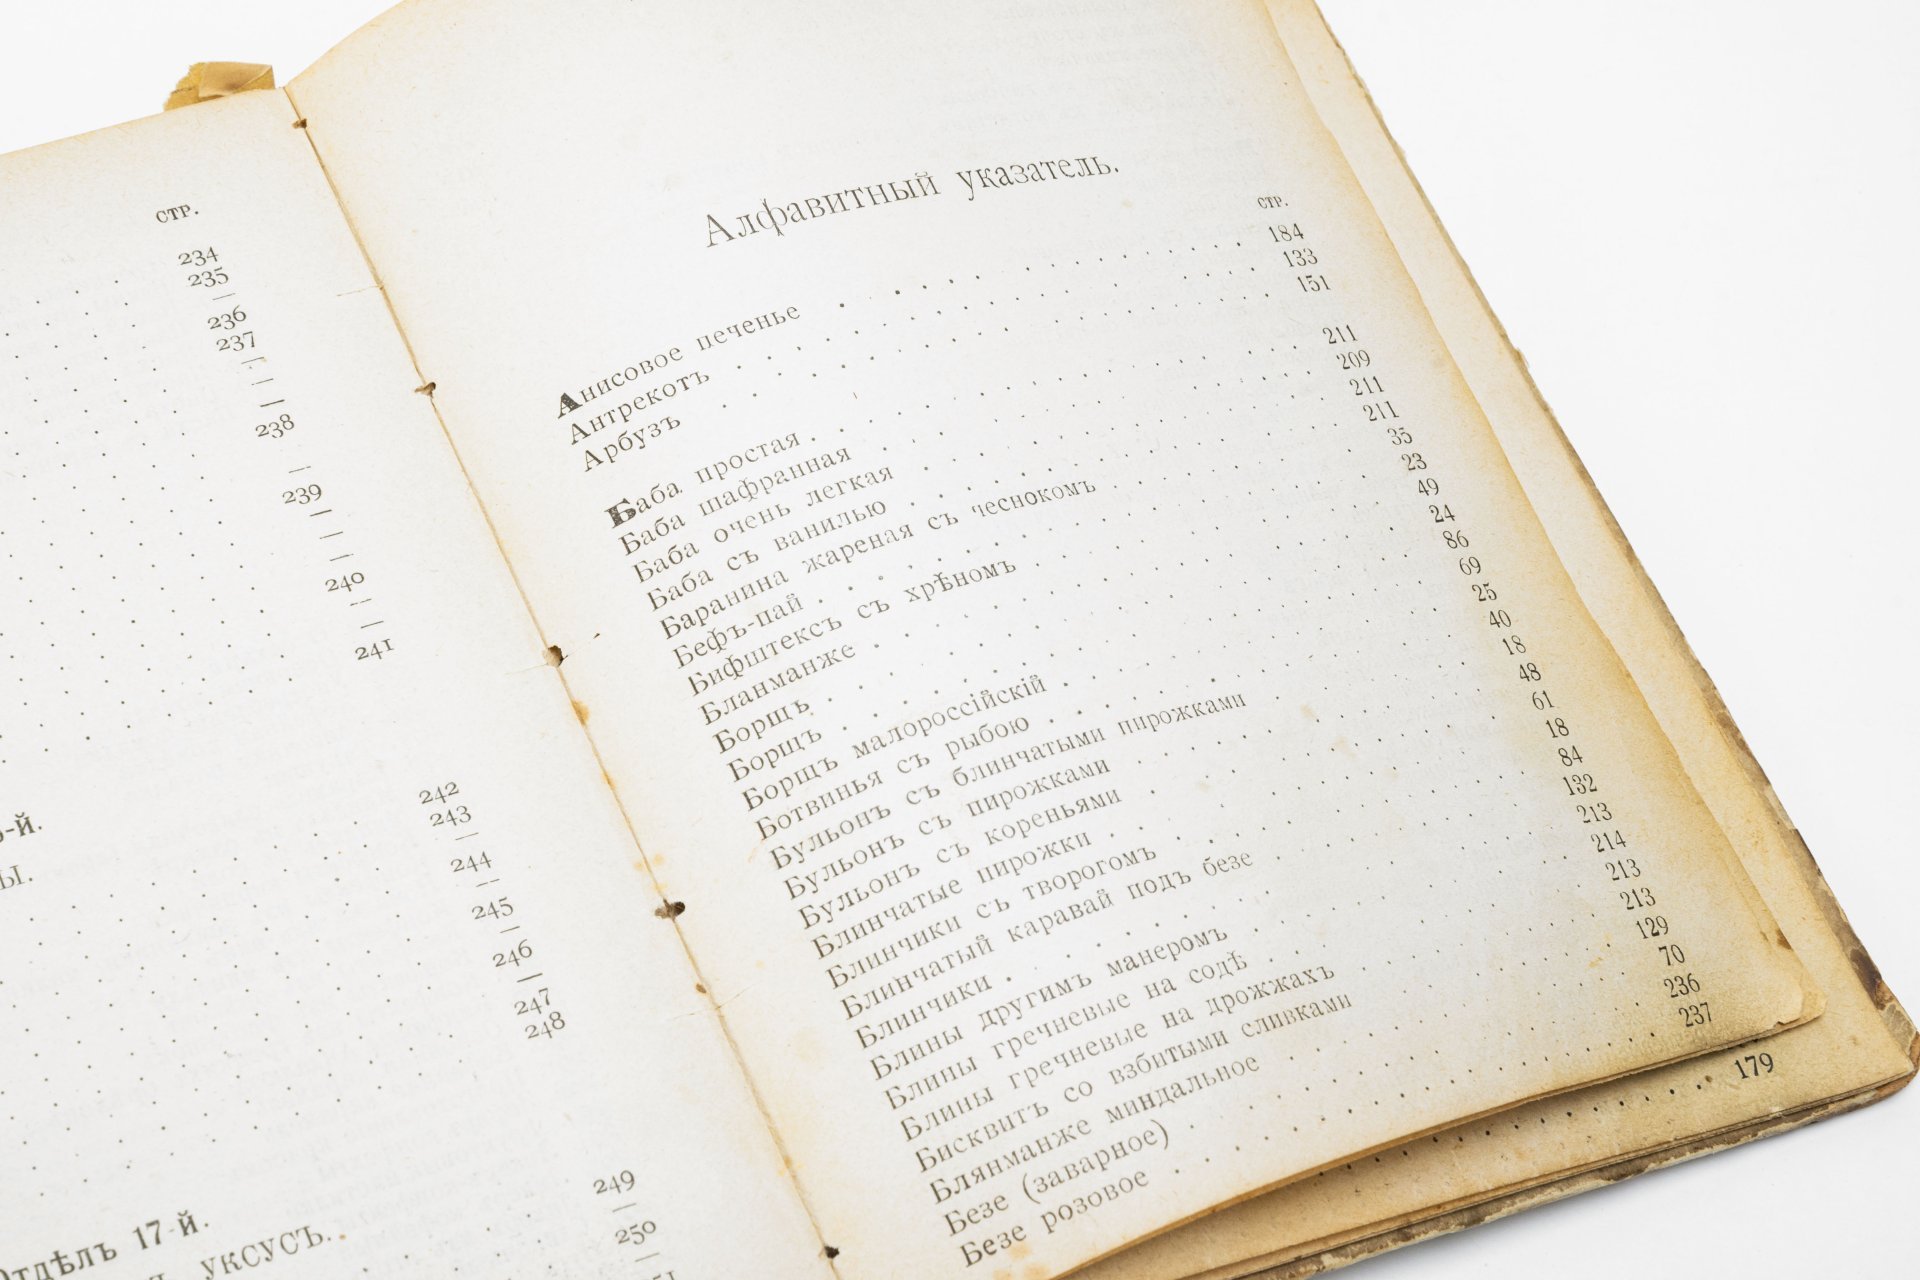 стр.
234
235
—
236
237
—
—
—
238
—
239
—
—
—
240
—
—
241
242
-й.
243
—
ы.
244
—
245
—
246
—
247
248
249
—
Отдѣлъ 17-й.
250
уксусъ.
—
Алфавитный указатель.
стр.
Анисовое печенье . . . . . . . . . . 184
Антрекотъ . . . . . . . . . . 133
Арбузъ . . . . . . . . . . 151
Баба простая . . . . . . . . . . 211
Баба шафранная . . . . . . . . . . 209
Баба очень легкая . . . . . . . . . . 211
Баба съ ванилью . . . . . . . . . . 211
Баранина жареная съ чеснокомъ . . . . . . . . 35
Бефъ-пай . . . . . . . . . . 23
Бифштексъ съ хрѣномъ . . . . . . . . . . 49
Бланманже . . . . . . . . . . 24
Борщъ . . . . . . . . . . 86
Борщъ . . . . . . . . . . 69
Борщъ малороссійскій . . . . . . . . . . 25
Ботвинья съ рыбою . . . . . . . . . . 40
Бульонъ съ блинчатыми пирожками . . . . . . . 18
Бульонъ съ пирожками . . . . . . . . . . 48
Бульонъ съ кореньями . . . . . . . . . . 61
Блинчатые пирожки . . . . . . . . . . 18
Блинчики съ творогомъ . . . . . . . . . . 84
Блинчатый каравай подъ безе . . . . . . . . 132
Блинчики . . . . . . . . . . 213
Блины другимъ манеромъ . . . . . . . . . . 214
Блины гречневые на содѣ . . . . . . . . . . 213
Блины гречневые на дрожжахъ . . . . . . . . 213
Бисквитъ со взбитыми сливками . . . . . . . . 129
Блянманже миндальное . . . . . . . . . . 70
Безе (заварное) . . . . . . . . . . 236
Безе розовое . . . . . . . . . . 237
. . . . . . . . 179